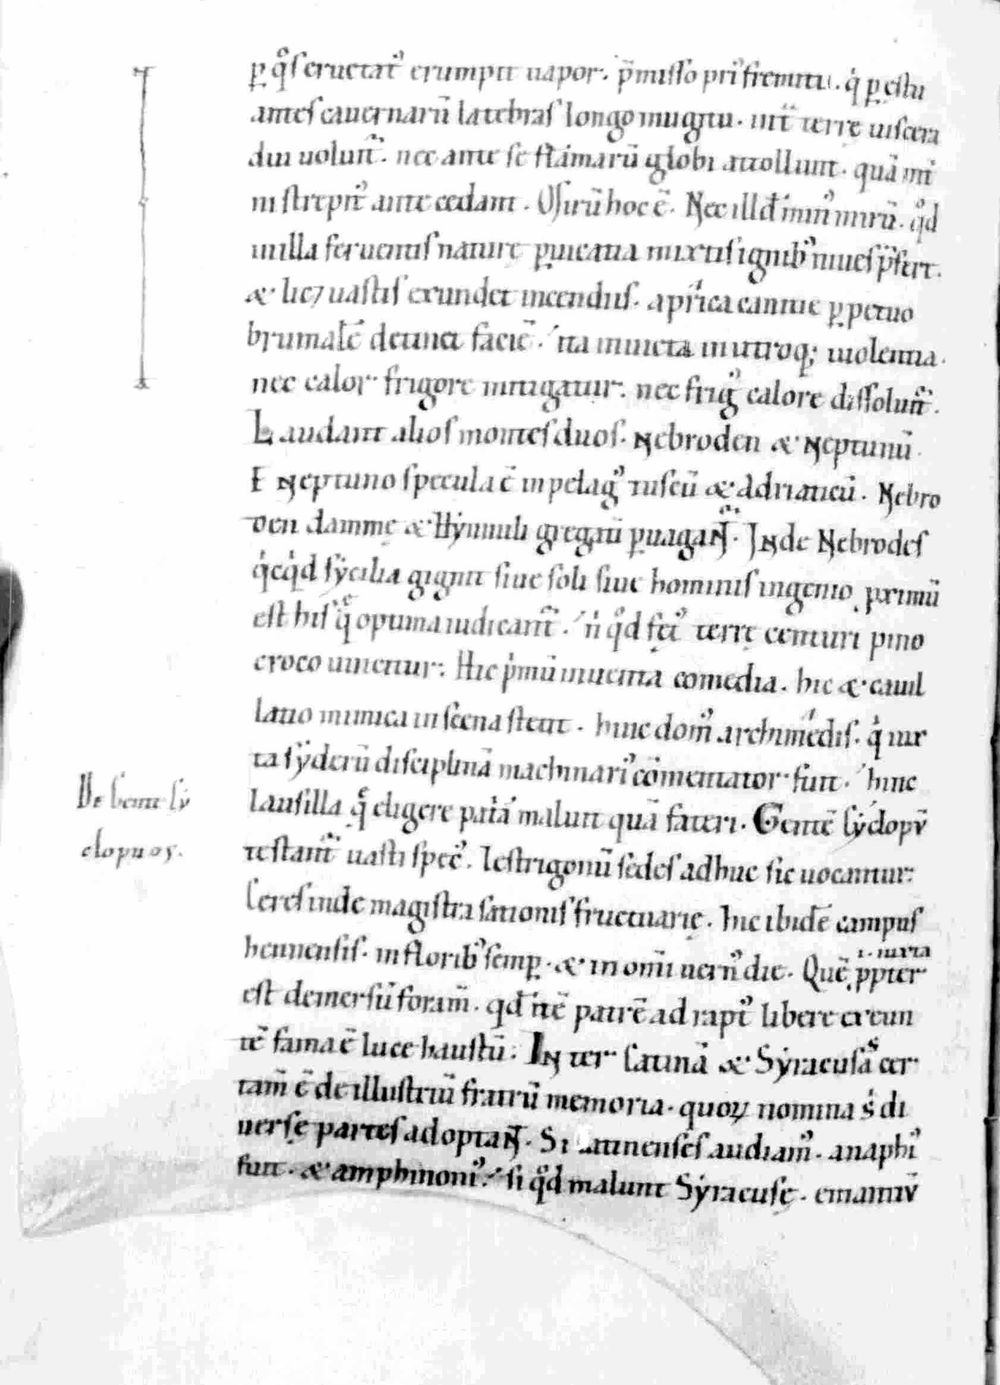 ꝑ q̊s eructat᷒ erumpit uapor. p̄misso pri᷒ fremitu. q̇ ꝑ estu
antes cauernarū latebras longo mugitu. int̄ terrę uiscera
diu uolunt᷒. nec ante se flāmarū globi attollunt. quā int᷒
ni strepit᷒ antecedant. Ⱳirū hoc ē. Nec illđ inim᷒ mirū. q̊d
in illa feruentis naturę ꝑuicatia mixtis ignib᷒ niues p̄fert.
& lic; uastis exundet incendiis. apiċa canitie ꝑpetuo
brumalē detinet faciē. ita inuicta in utroq; uiolentia.
nec calor frigore mitigatur. nec frig᷒ calore dissoluit᷒.
Laudant alios montes duos. Nebroden & Neptunū
E Neptuno specula ē in pelag᷒ tuscū & Adriaticū. Nebro
den dammę & hẏnnuli gregatī ꝑuagant᷒. Inde Nebrodes
q̇cq̇d sẏcilia gignit siue soli siue hominis ingenio, primū
est his q̄ optima iudicant᷒. n̄ q̊d fęt᷒ terrę centuri pino
croco uincitur. Hic p̄mū inuenta comedia. hic & cauil
latio mimica in scena stetit. hinc dom᷒ archimedis. q̇ iux
ta sẏderū disciplinā machinari᷒ cōmentator fuit. hinc
De gente cẏ
lausilla q̄ eligere patī malun quā fateri. Gentē cẏclopū
clopu os.
testant᷒ uasti spec᷒. lestrigonū sedes adhuc sic uocantur.
Ceres inde magistra sationis fructuarię. hic ibidē campus
hennensis. in florib᷒ semꝑ. & in om̄i uern᷒ die. Quē ꝓpter
.i. iuxta
est demersū foram̄. qđ itē patrē ad rapt᷒ liberę exeun
tē fama ē luce haustū. Inter catinā & Sẏracusas cer
tam̄ ē de illustriū fratrū memoria. quoꝝ nomina s᷒ di
uersę partes adoptant᷒. Si catinenses audiam᷒. anaphi᷒
fuit. & amphinom᷒. si q̊d malunt Sẏracusę. emantiū